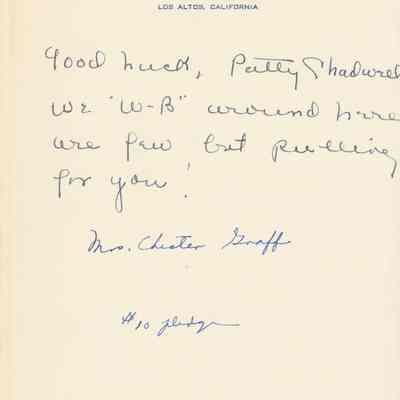 LOS ALTOS, CALIFORNIA
Good Luck, Patty Shadwell
we "W-B" around here
are few but pulling
for you!
Mrs. Chester Graff
$10 pledge